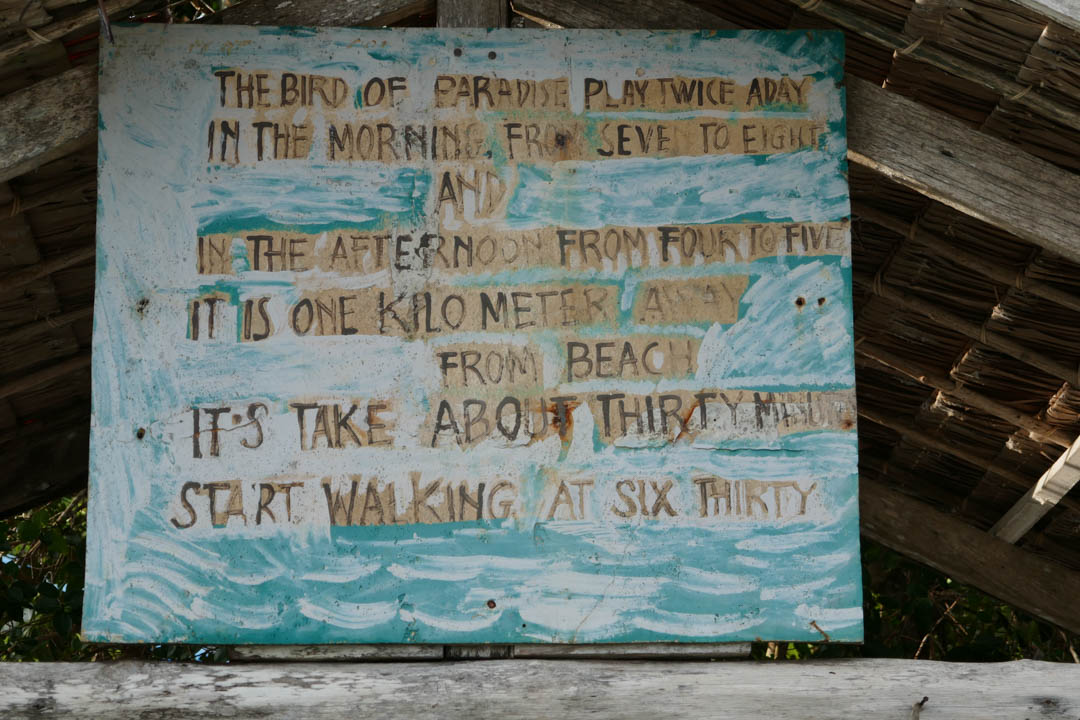 THE BIRD OF PARADISE PLAY TWICE ADAY
IN THE MORNING, FROM SEVEN TO EIGHT
AND
IN THE AFTERNOON FROM FOUR TO FIVE
IT IS ONE KILO METER AWAY
FROM BEACH
IT'S TAKE ABOUT THIRTY MINUT
START WALKING AT SIX THIRTY